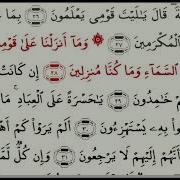 قَالَ يَٰلَيْتَ قَوْمِى يَعْلَمُونَ ٢٦ بِمَا
ٱلْمُكْرَمِينَ ٢٧ ۞ وَمَآ أَنزَلْنَا عَلَىٰ قَوْمِ
ٱلسَّمَآءِ وَمَا كُنَّا مُنزِلِينَ ٢٨ إِن كَانَتْ
خَٰمِدُونَ ٢٩ يَٰحَسْرَةً عَلَى ٱلْعِبَادِ ۚ مَا
بِهِۦ يَسْتَهْزِءُونَ ٣٠ أَلَمْ يَرَوْا۟ كَمْ
أَنَّهُمْ إِلَيْهِمْ لَا يَرْجِعُونَ ٣١ وَإِن كُلٌّ